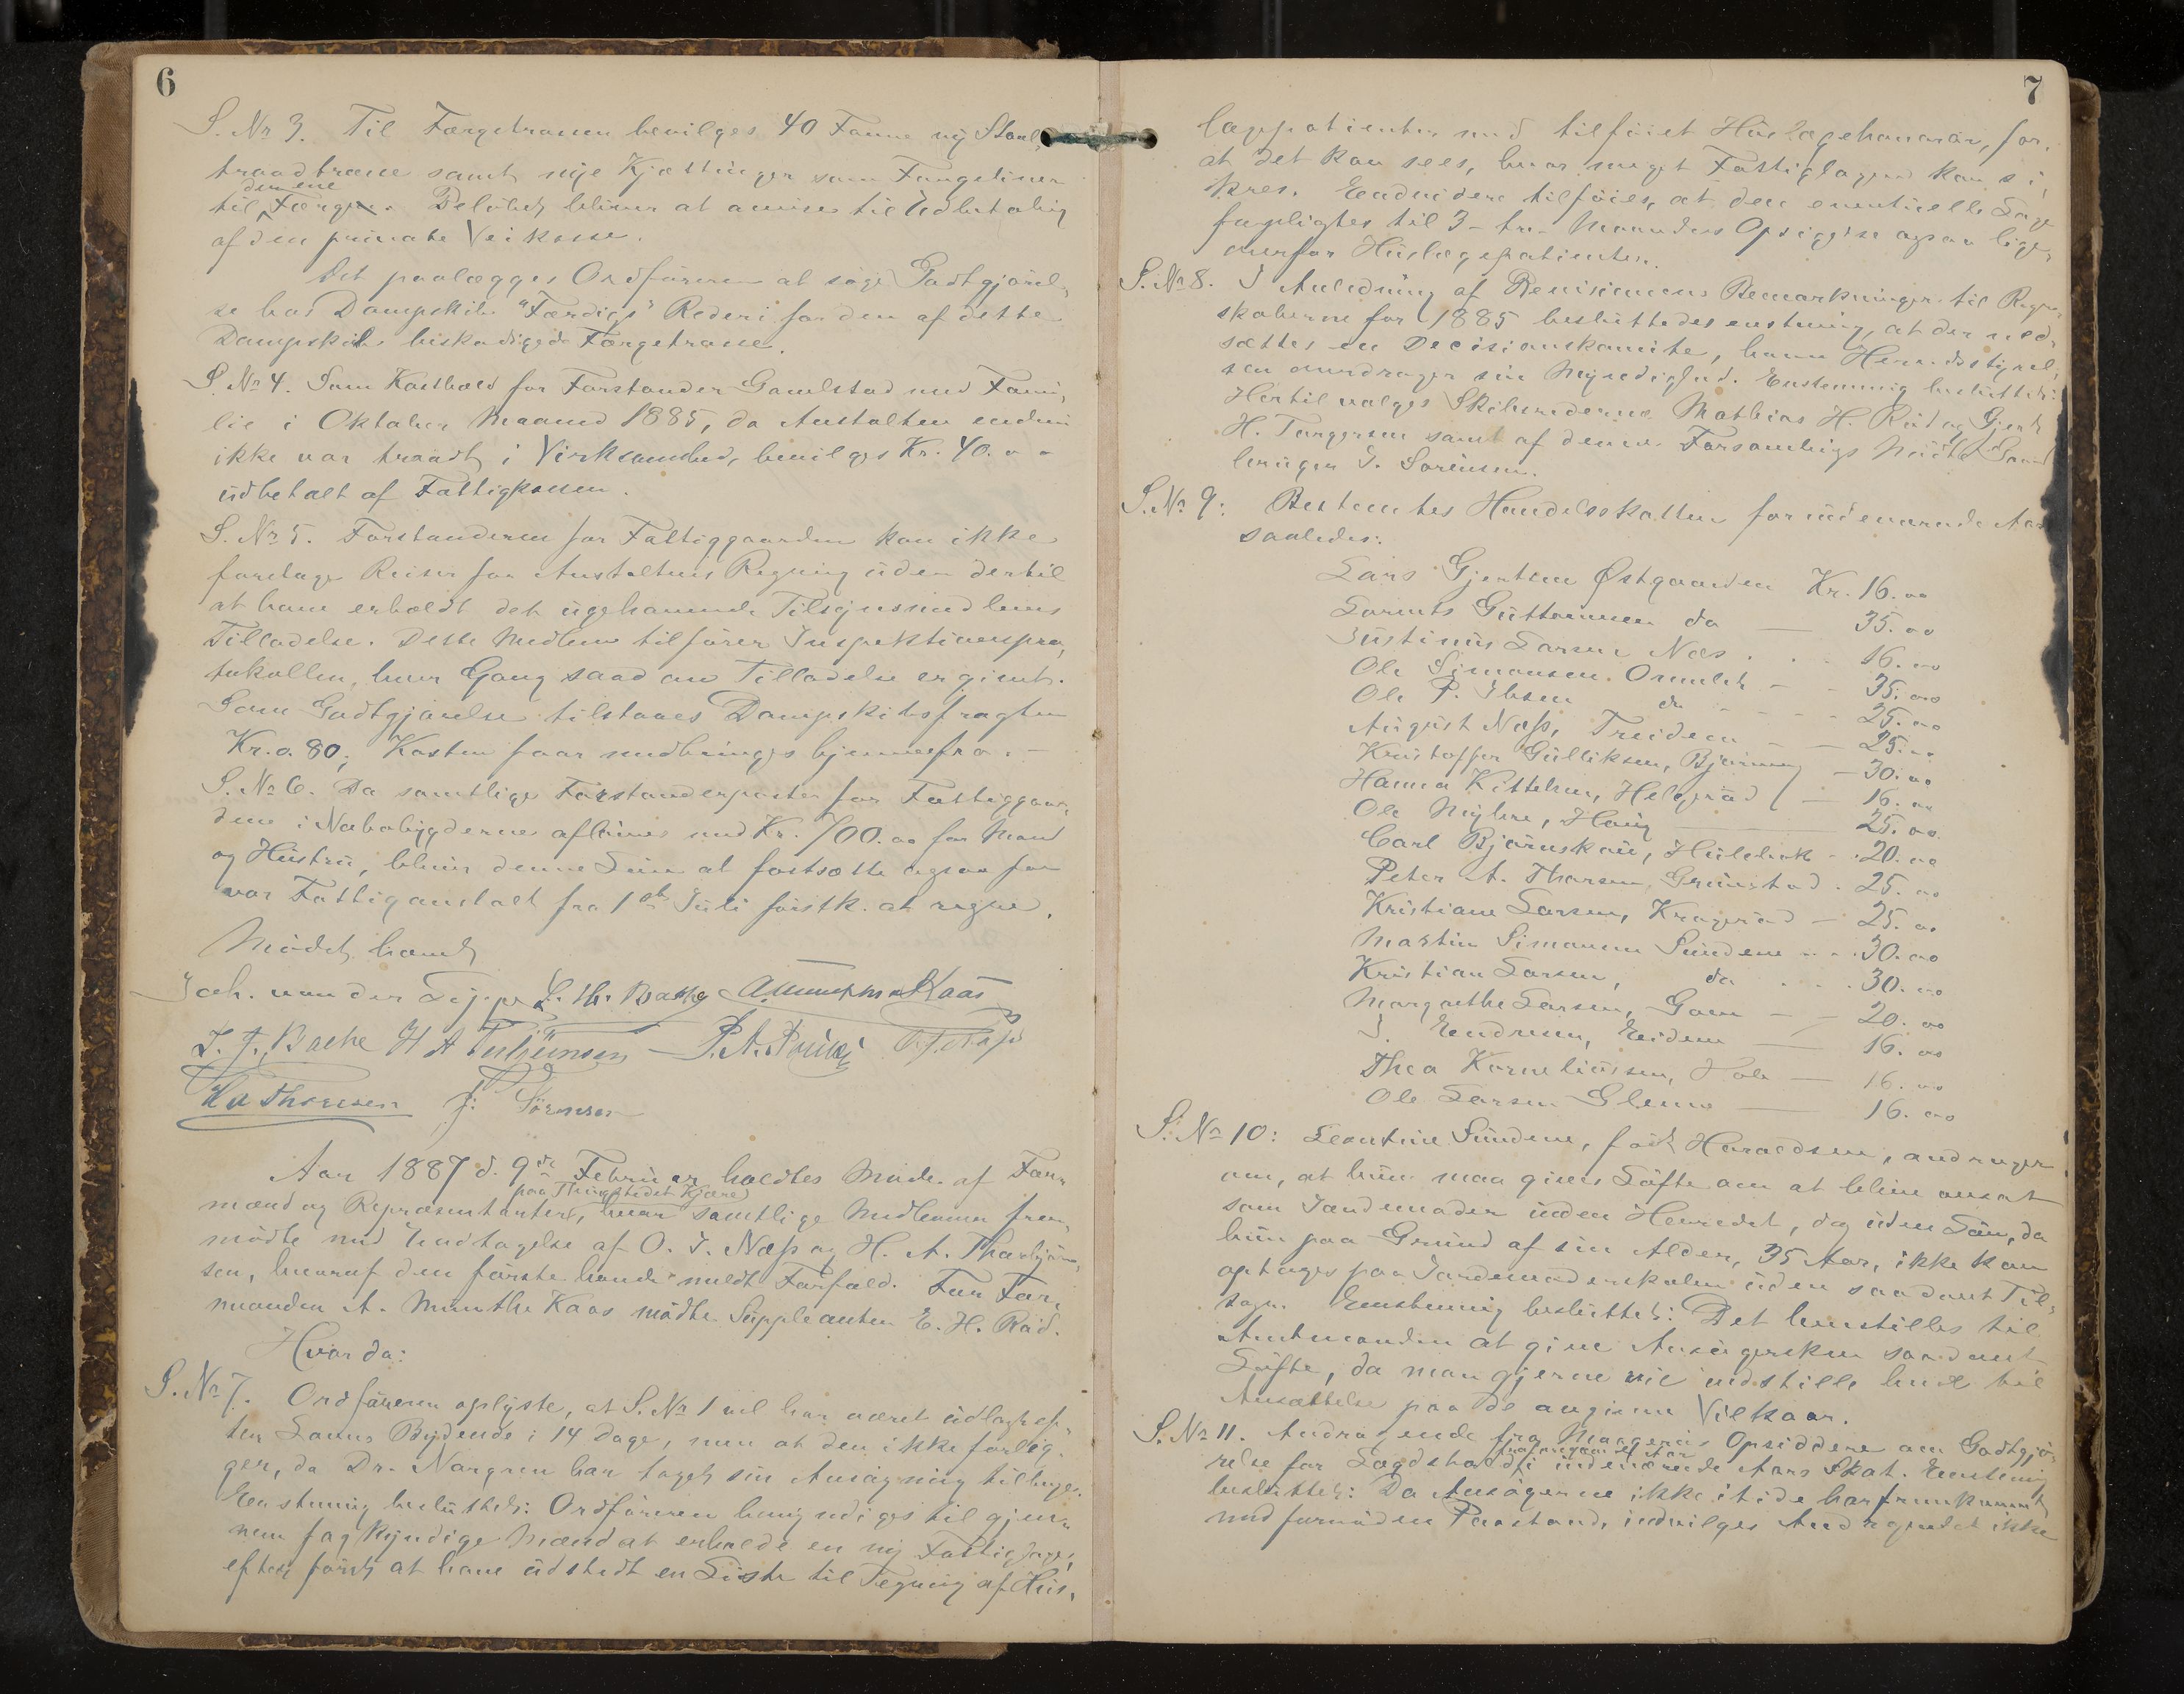 6
S. No 3. Til Færgetrossen bevilges 40 Favne ny Staal-
traadtrosse samt nye Kjættinger som Fangeliner
den ene
til Færgen. Beløbet bliver at anvise til Udbetaling
af den private Veikasse.
Det paalægges Ordføreren at søge Godtgjørel-
se hos Dampskib "Færdigs" Rederi for den af dette
Dampskib beskadigede Færgetrosse.
S. No 4. Som Kosthold for Forstander Gamlstad med Fami-
lie i Oktober Maaned 1885, da Anstalten endnu
ikke var traadt i Virksomhed, bevilges Kr. 40.00
udbetalt af Fattigkassen.
S. No 5. Forstanderen for Fattiggaarden kan ikke
foretage Reiser for Anstaltens Regning uden dertil
at have erholdt det ugehavende Tilsynsmedlems
Tilladelse. Dette Medlem tilfører Inspektionspro-
tokollen, hver Gang saadan Tilladelse er givet.
Som Godtgjørelse tilstaaes Dampskibsfragten
Kr. 0.80; Kosten faar medbringes hjemmefra. –
S. No 6. Da samtlige Forstanderposter for Fattiggaar-
dene i Nabobygderne aflønnes med Kr. 700.00 for Mand
og Hustru, bliver denne Sum at fastsætte ogsaa for
vor Fattiganstalt fra 1ste Juli førstk. at regne.
Mødet hævet
Joch. von der Lippe L. Th. Bache A Munthe Kaas
I. J. Bache H A
H A Thorsen J. Sørensen
Aar 1887 d. 9de Februar holdtes Møde af For-
paa Thingstedet Kjære
mænd og Repræsentanter, hvor samtlige Medlemmer frem-
mødte med Undtagelse af O. J. Næss og H. A. Thorbjørn-
sen, hvoraf den første havde meldt Forfald. For For-
manden A. Munthe Kaas mødte Suppleanten E. H. Rød.
Hvorda:
S. No 7. Ordføreren oplyste, at S. No 1 vel har været udlagt ef-
ter Lovens Bydende i 14 Dage, men at den ikke forelig-
ger, da Dr. Norgren har taget sin Ansøgning tilbage.
Enstemmig besluttet: Ordføreren bemyndiges til gjen-
nem fagkyndige Mænd at erholde en ny Fattiglæge,
efter først at have udstedt en Liste til Tegning af Hus-
7
lægepatienter med tilføiet Huslægehonorar, for
at det kan sees, hvor meget Fattiglægen kan si-
kres. Endvidere tilføies, at den eventuelle Læge
forpligtes til 3 – tre – Maaneders Opsigelse ogsaa lige-
overfor Huslægepatienter.
S. No 8. I Anledning af Revisionens Bemærkninger til Regn-
skaberne for 1885 besluttedes enstemmig, at der ned-
sættes en Decisionskomite, hvem Herredsstyrel-
sen overdrager sin Myndighed. Enstemmig besluttet:
Hertil valges Skibsrederne Mathias H. Rød og Gjert
H. Torgersen samt af denne Forsamlings Midte Sand-
bruger J. Sørensen.
S. No 9: Bestemtes Handelsskatten for indeværende Aar
saaledes:
Lars Gjertsen Østgaarden Kr. 16.00
Lorents Guttormsen do — 35.00
Justinus Larsen Næs . . . 16.00
Ole Simonsen, Omdalen – – 35.00
Ole P. Ibsen do – – – – 25.00
August Næss, Treiden – – 25.00
Kristoffer Gulliksen, Bjønnæs – 30.00
Hanna Kittelsen, Helgerød – 16.00
Ole Myhre, Haug — 25.00
Carl Bjørnskau, Hulebak – . 20.00
Peter A. Thorsen, Grimstad . 25.00
Kristiane Larsen, Kragerød – 25.00
Martin Simonsen Sundene . . . 30.00
Kristian Larsen, do . . . 30.00
Margrethe Larsen, Gaare – – 20.00
J. Endresen, Eidene — 16.00
Thea Korneliussen, Hole — 16.00
Ole Larsen Glenne — 16.00
S. No 10: Leontine Sundene, født Haraldsen, andrager
om, at hun maa gives Løfte om at blive ansat
som Jordemoder inden Herredet, dog uden Løn, da
hun paa Grund af sin Alder, 35 Aar, ikke kan
optages paa Jordemoderskolen uden saadant Til-
sagn. Enstemmig besluttet: Det henstilles til
Amtmanden at give Ansøgersken saadant
Løfte, da man gjerne vil indstille hende til
Ansættelse paa de angivne Vilkaar.
S. No 11. Andragende fra Maagerøs Opsiddere om Godtgjø-
fra foregaaende Aar
relse for Lægdshold i indeværende Aars Skat. Enstemmig
besluttet: Da Ansøgerne ikke itide har fremkommet
med fornøden Paastand, indvilges Andragendet ikke